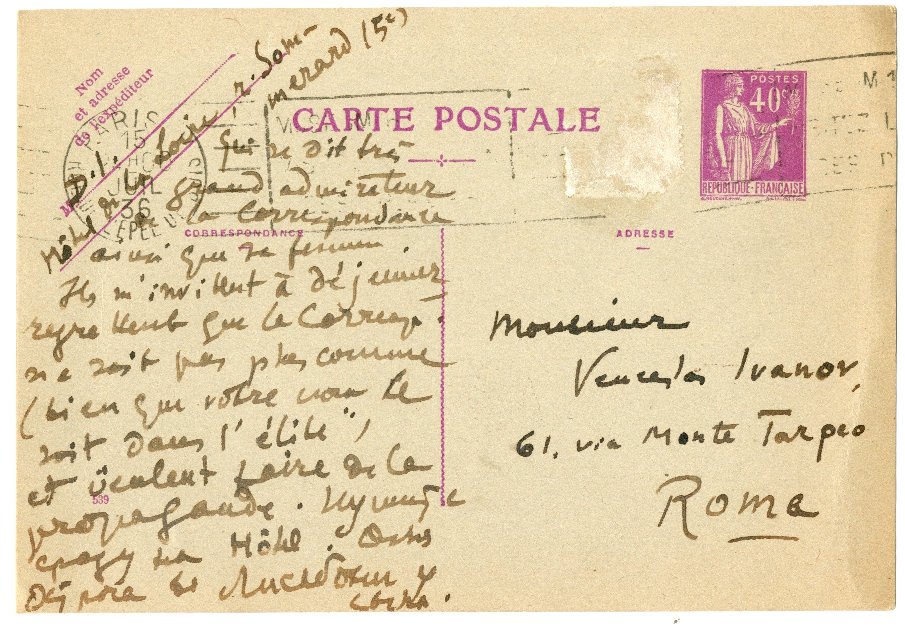 Nom
et adresse
de l'expéditeur
D. I.
Hôtel de la Loire, r. Som-
merard (5e)
PARIS
15
JUIL
36
CARTE POSTALE
POSTES
40 c
REPUBLIQUE-FRANÇAISE
CORRESPONDANCE
ADRESSE
qui se dit très
grand admirateur
de la Correspondance
ainsi que sa femme.
Ils m'invitent à déjeuner
regrettent que la Corresp.
ne soit pas plus connue
(bien que votre nom le
soit dans l'élite")
et veulent faire de la
propagande.
Hôtel.
539
Monsieur
Venceslas Ivanov,
61, via Monte Tarpeo
Roma